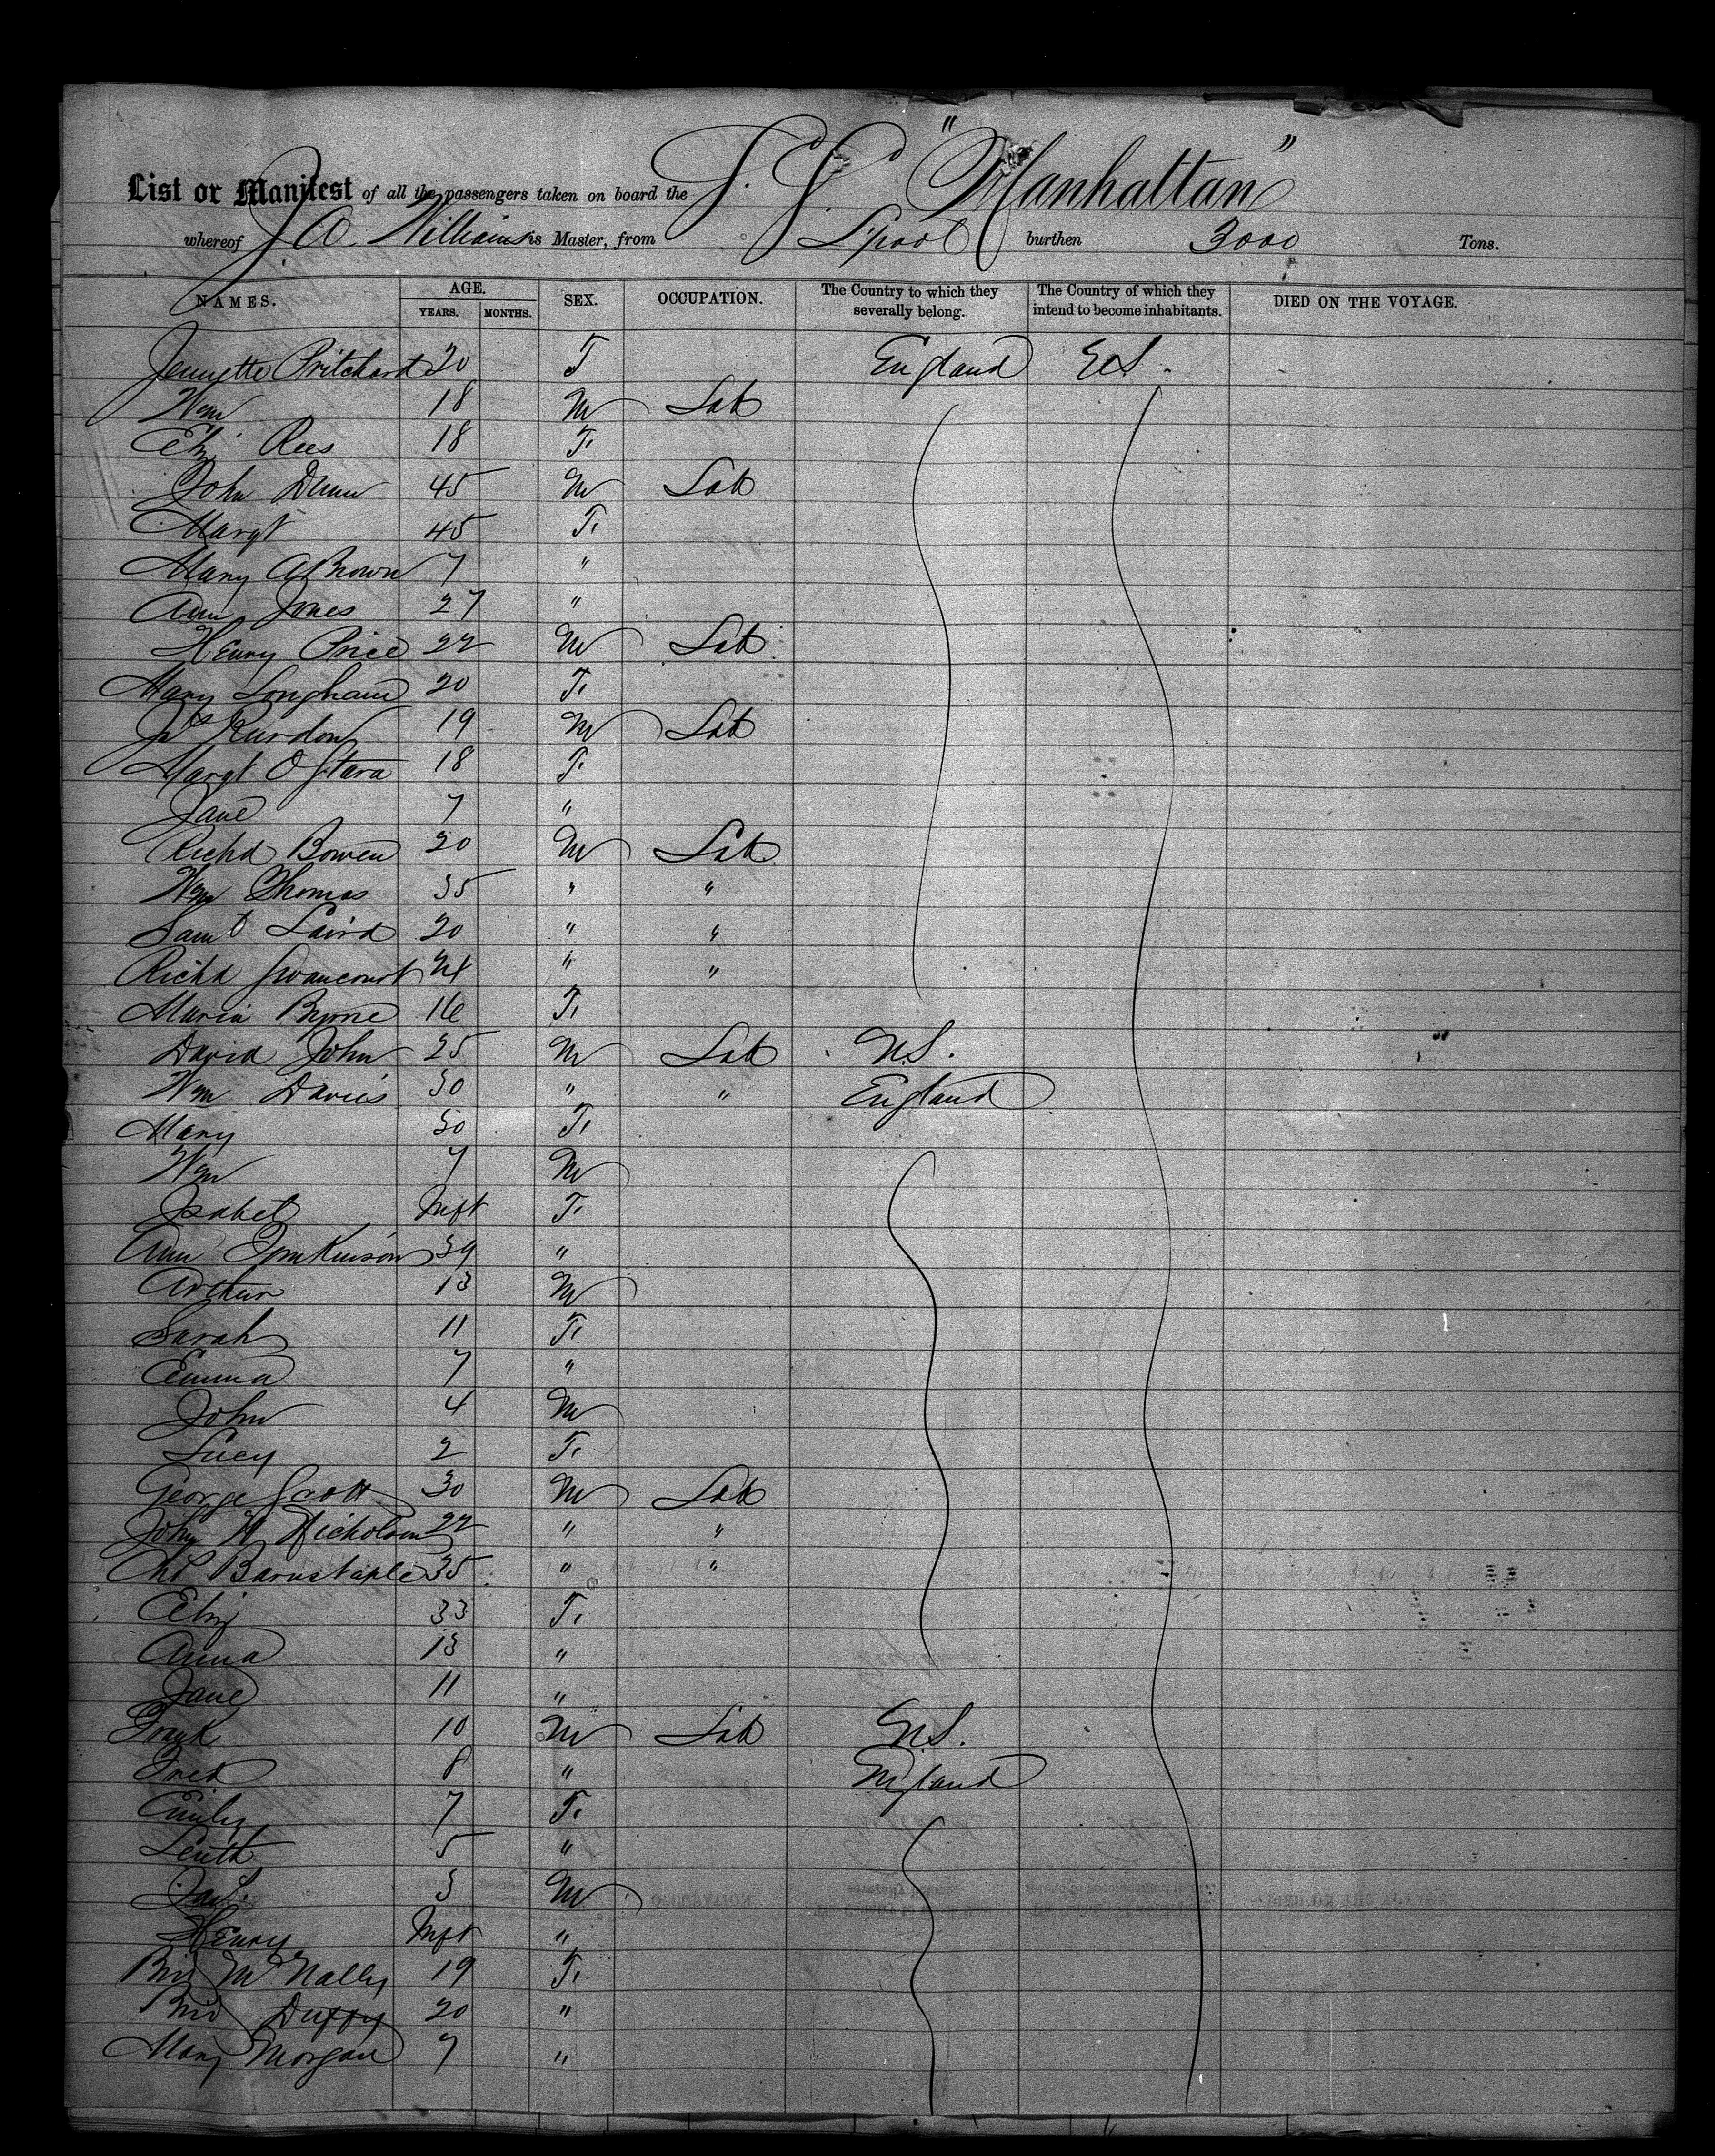 List or Manifest of all the passengers taken on board the S.S. "Manhattan"
whereof J A Williams is Master, from L'pool burthen 3000 Tons.
NAMES. AGE. YEARS. MONTHS. SEX. OCCUPATION. The Country to which they severally belong. The Country of which they intend to become inhabitants. DIED ON THE VOYAGE.
Jennette Pritchard 20 F England U.S.
Wm 18 M Lab
Eliz Rees 18 F
John Dunn 45 M Lab
Margt 45 F
Mary A Brown 7 "
Ann Jones 27 "
Henry Price 22 M Lab
Mary Longham 20 F
Jas Riordon 19 M Lab
Margt O'Hara 18 F
Jane 7 "
Richd Bowen 20 M Lab
Wm Thomas 35 " "
Saml Laird 20 " "
Richd 24 " "
Maria Byrne 16 F
David John 25 M Lab U.S.
Wm Davies 30 " " England
Mary 30 F
Wm 7 M
Isabel Inft F
Ann Tomkinson 39 "
Arthur 13 M
Sarah 11 F
Emma 7 "
John 4 M
Lucy 2 F
George Scott 30 M Lab
John W Nicholson 22 " "
Chs Barnstaple 35 " "
Eliz 33 F
Anna 13 "
Jane 11 "
Frank 10 M Lab U.S.
Fred 8 " England
Emily 7 F
5 "
3 M
Henry Inft "
Brid McNally 19 F
Brid Duffy 20 "
Mary Morgan 7 "